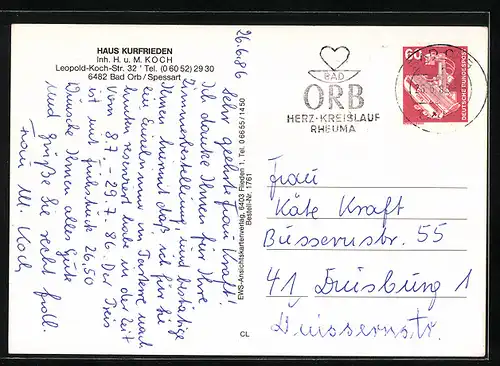 HAUS KURFRIEDEN
Inh. H. u. M. KOCH
Leopold-Koch-Str. 32 · Tel. (0 60 52) 29 30
6482 Bad Orb / Spessart
26.6.86
Sehr geehrte Frau Kraft!
Ich danke Ihnen für Ihre
Zimmerbestellung, und bestätige
Ihnen hiermit daß ich für Sie
ein Einzelzimmer im Parterre nach
hinten reserviert habe in der Zeit
vom 8.7. - 29.7.86. Der Preis
ist mit Frühstück 26,50
Wünsche Ihnen alles Gute
und grüße Sie recht frdl.
Frau M. Koch
EWS-Ansichtskartenverlag, 6403 Flieden 1, Tel. 0 66 55 / 14 50
Bestell-Nr. 1761
CL
BAD
ORB
HERZ·KREISLAUF
RHEUMA
60
DEUTSCHE BUNDESPOST
Frau
Käte Kraft
Büssernstr. 55
41 Duisburg 1
Duissernstr.